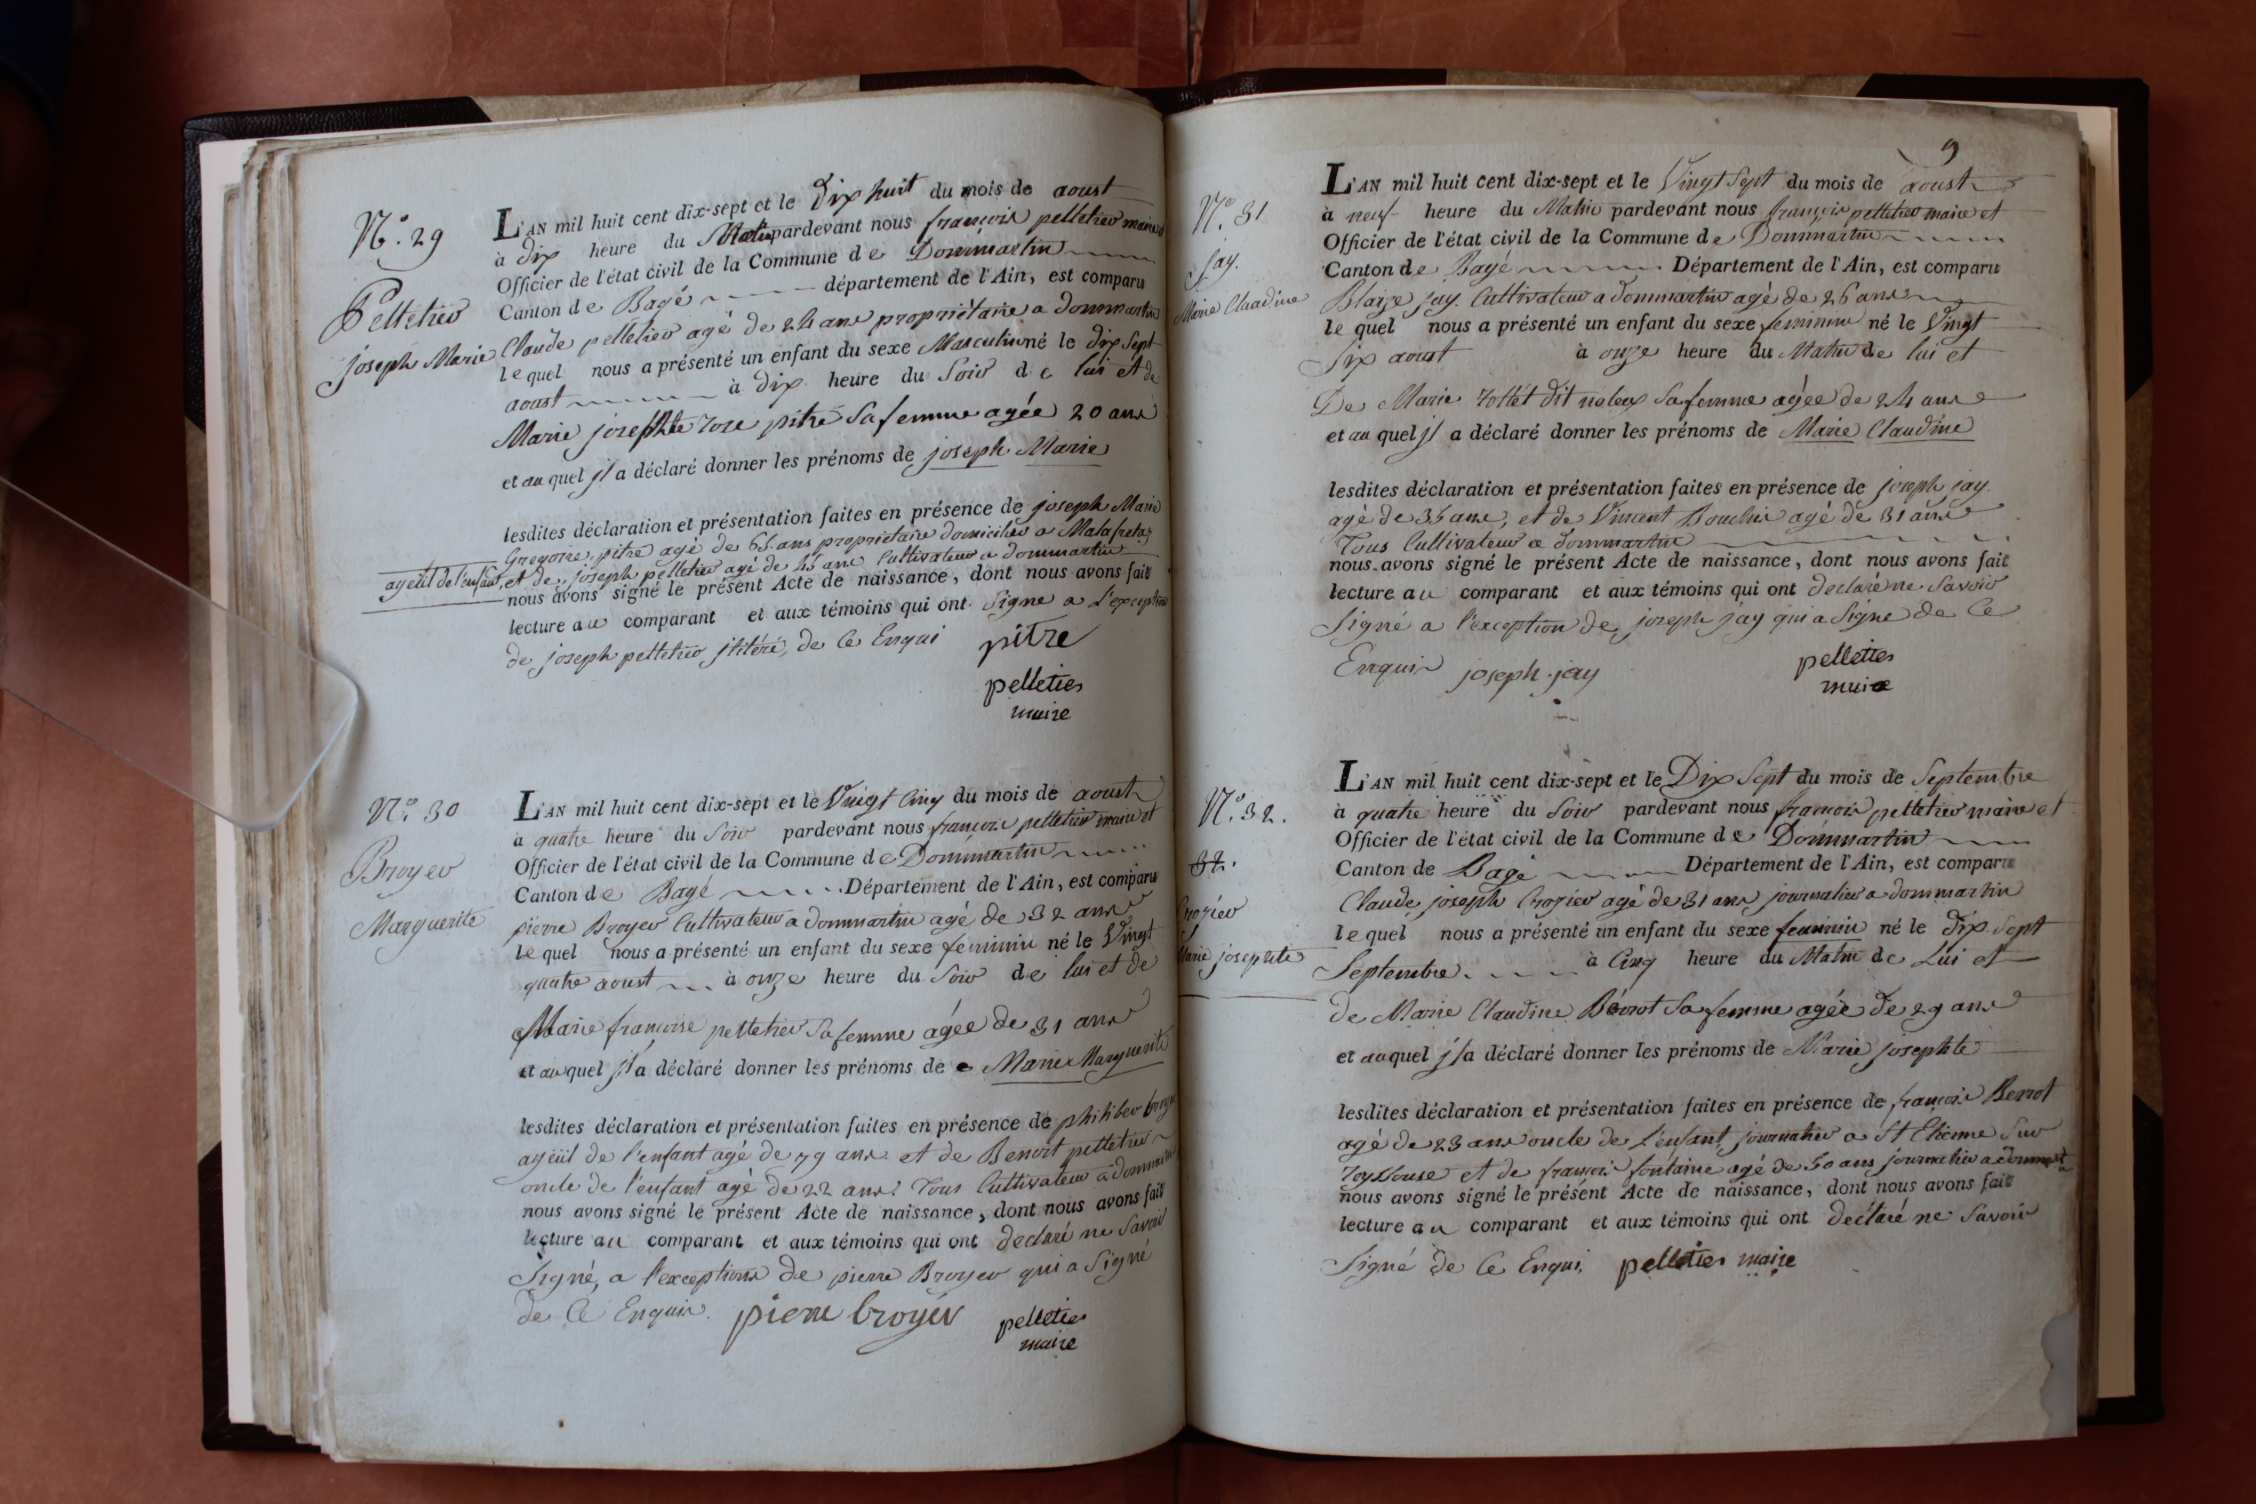 N.° 29
Pelletier
joseph Marie
L'AN mil huit cent dix-sept et le Dix huit du mois de aoust
à dix heure du Matin pardevant nous françois pelletier maire et
Officier de l'état civil de la Commune de Dommartin
Canton de Bagé département de l'Ain, est comparu
Claude pelletier agé de 24 ans propriétaire a dommartin
le quel nous a présenté un enfant du sexe Masculin né le dix Sept
aoust à dix heure du Soir de lui et de
Marie josephte rose pitre Sa femme agée 20 ans
et au quel jl a déclaré donner les prénoms de joseph Marie
lesdites déclaration et présentation faites en présence de joseph Marie
Gregoire pitre agé de 65 ans propriétaire domicilier a Malafretaz
ayeül de l'enfant, et de joseph pelletier agé de 45 ans Cultivateur a dommartin
nous avons signé le présent Acte de naissance, dont nous avons fait
lecture au comparant et aux témoins qui ont Signe a L'exception
de joseph pelletier jtiteré, de Ce Enqui
pitre
pelletier
maire
N.° 30
Broyer
Marguerite
L'AN mil huit cent dix-sept et le Vingt Cinq du mois de aoust
à quatre heure du Soir pardevant nous françois pelletier maire et
Officier de l'état civil de la Commune de Dommartin
Canton de Bagé Département de l'Ain, est comparu
pierre Broyer Cultivateur a dommartin agé de 32 ans
le quel nous a présenté un enfant du sexe féminin né le Vingt
quatre aoust à onze heure du Soir de lui et de
Marie françoise pelletier Sa femme agée de 31 ans
et au quel jl a déclaré donner les prénoms de Marie Marguerite
lesdites déclaration et présentation faites en présence de philiber broyer
ayeül de l'enfant agé de 79 ans et de Benoit pelletier
oncle de l'enfant agé de 22 ans Tous Cultivateur a dommartin
nous avons signé le présent Acte de naissance, dont nous avons fait
lecture au comparant et aux témoins qui ont declaré ne Savoir
Signé, a l'exception de pierre Broyer qui a Signé
de Ce Enquis.
pierre broyer
pelletier
maire
9
N.° 31
jay.
Marie Claudine
L'AN mil huit cent dix-sept et le Vingt Sept du mois de aoust
à neuf heure du Matin pardevant nous françois pelletier maire et
Officier de l'état civil de la Commune de Dommartin
Canton de Bagé Département de l'Ain, est comparu
Blaize jay Cultivateur a dommartin agé de 26 ans
le quel nous a présenté un enfant du sexe feminin né le Vingt
Six aoust à onze heure du Matin de lui et
De Marie Tottet dit Sa femme agée de 24 ans
et au quel jl a déclaré donner les prénoms de Marie Claudine
lesdites déclaration et présentation faites en présence de joseph jay
agé de 35 ans, et de Vincent Bouchis agé de 31 ans
Tous Cultivateur a dommartin
nous avons signé le présent Acte de naissance, dont nous avons fait
lecture au comparant et aux témoins qui ont declaré ne Savoir
Signé a l'exception de joseph jay qui a Signe de Ce
Enquis
joseph jay
pelletier
maire
N.° 32.
32.
Crozier
Marie josephte
L'AN mil huit cent dix-sept et le Dix Sept du mois de Septembre
à quatre heure du Soir pardevant nous françois pelletier maire et
Officier de l'état civil de la Commune de Dommartin
Canton de Bagé Département de l'Ain, est comparu
Claude joseph Crozier agé de 31 ans journalier a dommartin
le quel nous a présenté un enfant du sexe feminin né le dix Sept
Septembre à Cinq heure du Matin de Lui et
de Marie Claudine Bérrot Sa femme agée de 29 ans
et au quel jl a déclaré donner les prénoms de Marie josephte
lesdites déclaration et présentation faites en présence de françois Berrot
agé de 23 ans oncle de L'enfant journalier a St Etienne Sur
Reyssouse et de françois fontaine agé de 50 ans journalier a dommart
nous avons signé le présent Acte de naissance, dont nous avons fait
lecture au comparant et aux témoins qui ont declaré ne Savoir
Signé de Ce Enqui.
pelletier maire